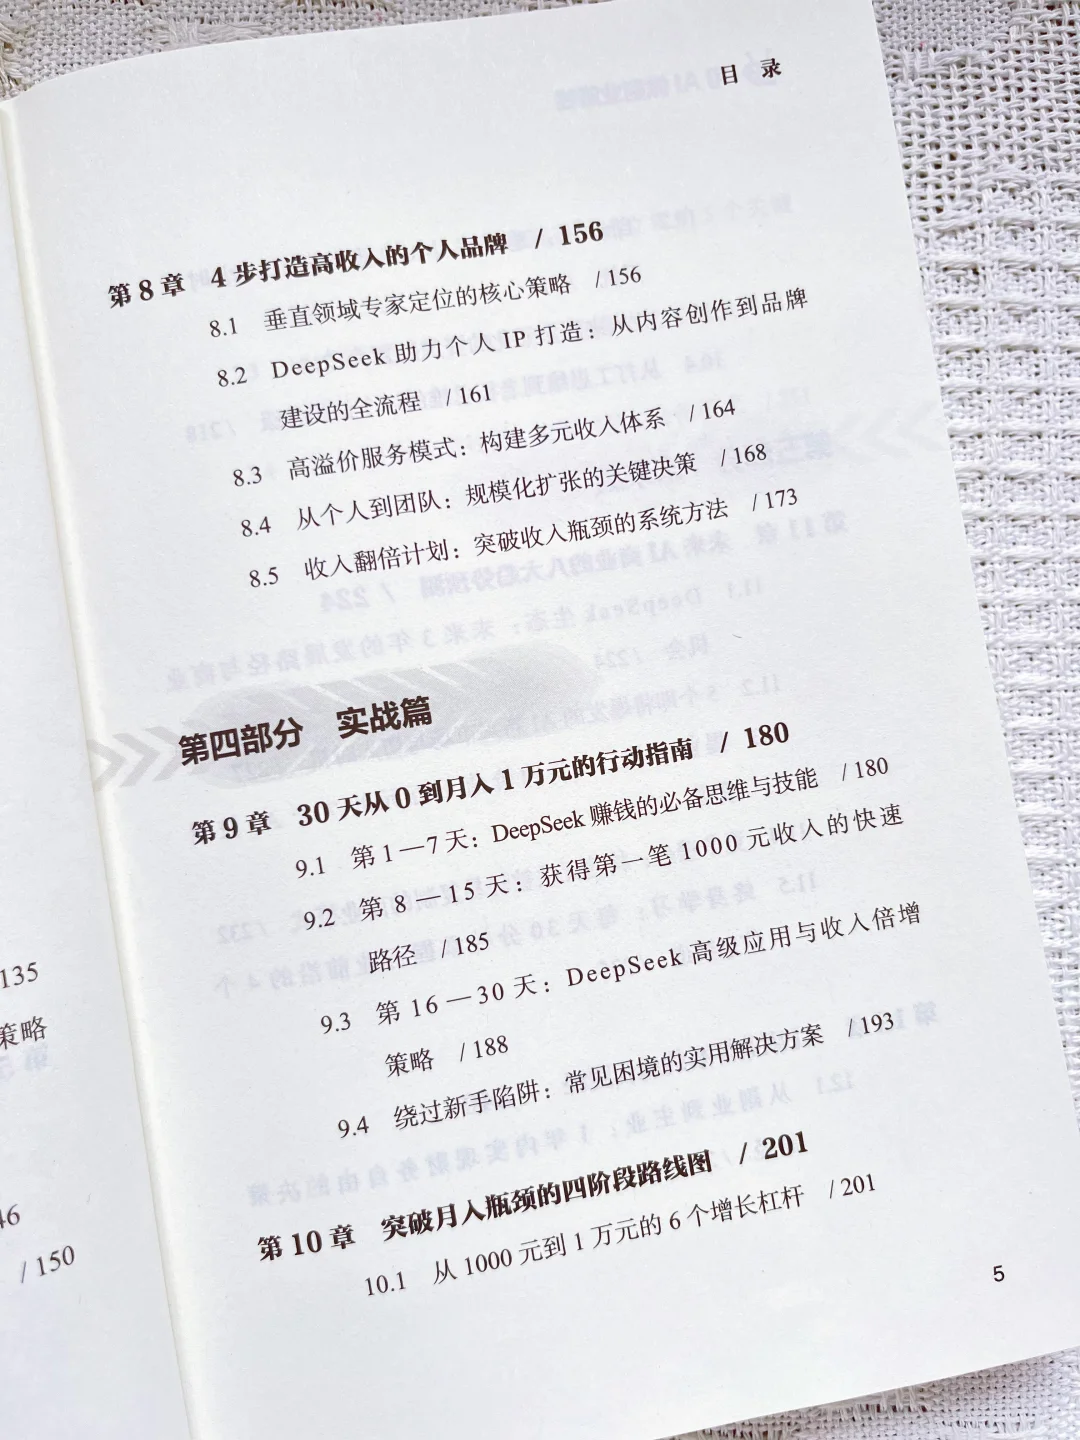 目 录
第 8 章 4 步打造高收入的个人品牌 / 156
8.1 垂直领域专家定位的核心策略 / 156
8.2 DeepSeek 助力个人 IP 打造：从内容创作到品牌
建设的全流程 / 161
8.3 高溢价服务模式：构建多元收入体系 / 164
8.4 从个人到团队：规模化扩张的关键决策 / 168
8.5 收入翻倍计划：突破收入瓶颈的系统方法 / 173
第四部分 实战篇
第 9 章 30 天从 0 到月入 1 万元的行动指南 / 180
9.1 第 1—7 天：DeepSeek 赚钱的必备思维与技能 / 180
9.2 第 8—15 天：获得第一笔 1000 元收入的快速
路径 / 185
9.3 第 16—30 天：DeepSeek 高级应用与收入倍增
策略 / 188
9.4 绕过新手陷阱：常见困境的实用解决方案 / 193
第 10 章 突破月入瓶颈的四阶段路线图 / 201
10.1 从 1000 元到 1 万元的 6 个增长杠杆 / 201
5
135
策略
46
/ 150